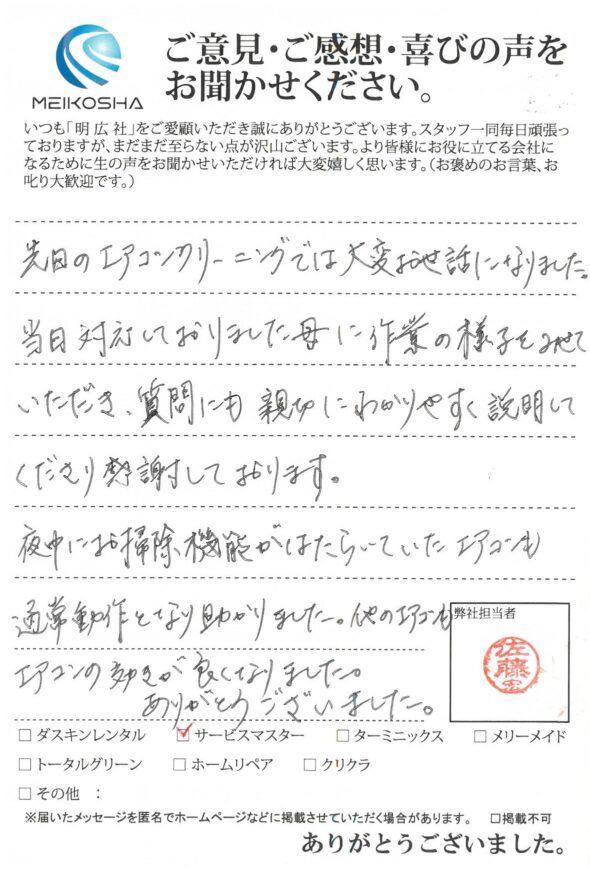 MEIKOSHA
ご意見・ご感想・喜びの声を
お聞かせください。
いつも「明広社」をご愛顧いただき誠にありがとうございます。スタッフ一同毎日頑張っ
ておりますが、まだまだ至らない点が沢山ございます。より皆様にお役に立てる会社に
なるために生の声をお聞かせいただければ大変嬉しく思います。（お褒めのお言葉、お
叱り大歓迎です。）
先日のエアコンクリーニングでは大変お世話になりました。
当日対応しておりました母に作業の様子をみせて
いただき、質問にも親切にわかりやすく説明して
くださり感謝しております。
夜中にお掃除機能がはたらいていたエアコンも
通常動作となり助かりました。他のエアコンも
エアコンの効きが良くなりました。
ありがとうございました。
弊社担当者
佐藤
□ ダスキンレンタル ☑ サービスマスター □ ターミニックス □ メリーメイド
□ トータルグリーン □ ホームリペア □ クリクラ
□ その他 ：
※届いたメッセージを匿名でホームページなどに掲載させていただく場合があります。 □掲載不可
ありがとうございました。